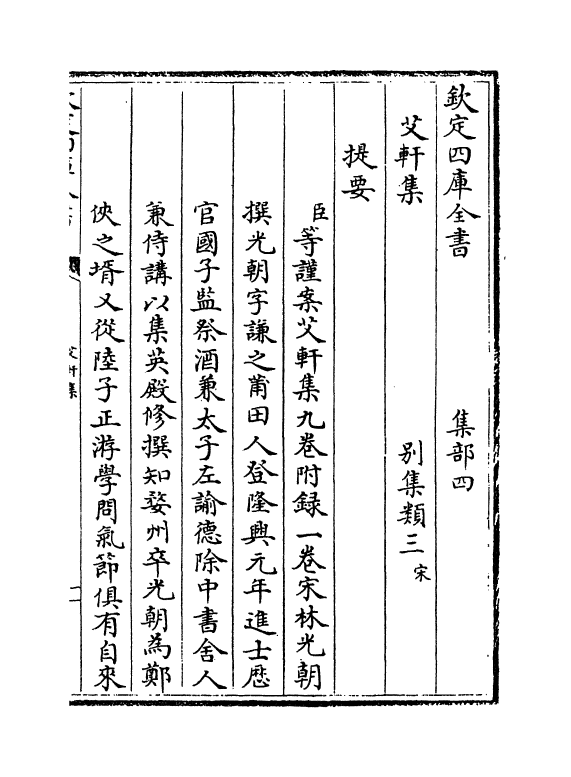 欽定四庫全書　集部四
艾軒集　別集類三宋
提要
臣等謹案艾軒集九卷附録一卷宋林光朝
撰光朝字謙之莆田人登隆興元年進士歴
官國子監祭酒兼太子左諭德除中書舍人
兼侍講以集英殿修撰知婺州卒光朝為鄭
俠之壻又從陸子正游學問氣節俱有自來
艾軒集